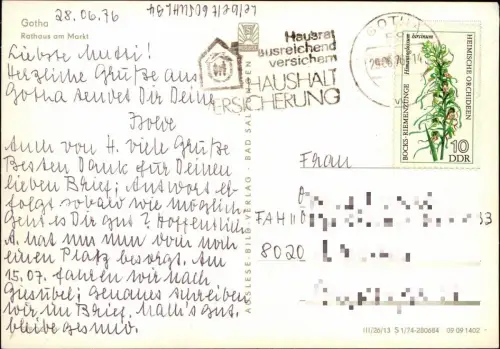 28.06.76
Gotha
Rathaus am Markt
Liebste Mutti!
Herzliche Grüße aus
Gotha sendet Dir Deine
Auch von H. viele Grüße
Besten Dank für Deinen
lieben Brief; Antwort er-
folgt sobald wie möglich.
Geht es Dir gut? Hoffentlich
A. hat uns nun vom noch
einen Platz besorgt. Am
15.07. fahren wir nach
Giesübel; Genaues schreiben
wir im Brief, halt's gut,
bleibe gesund.
AUSLESE-BILD-VERLAG · BAD SALZUNGEN
Hausrat
ausreichend
versichern
HAUSHALT
VERSICHERUNG
GOTHA
BOCKS-RIEMENZUNGE
Himantoglossum hircinum
HEIMISCHE ORCHIDEEN
10
DDR
Frau
8020
III/26/13 S 1/74-280684 09 09 1402